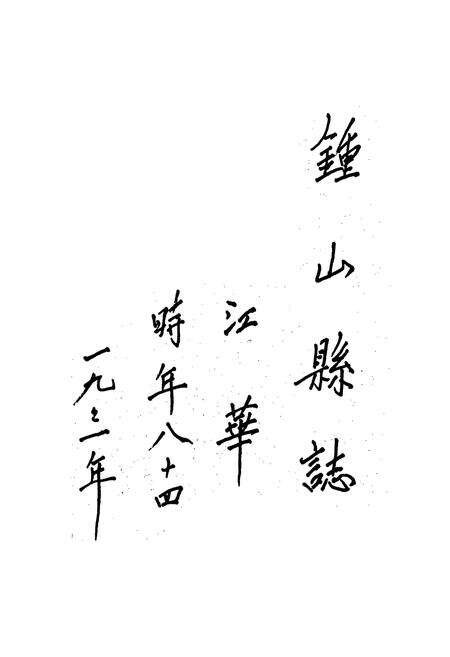 鍾山縣誌
江華
時年八十四
一九〻一年